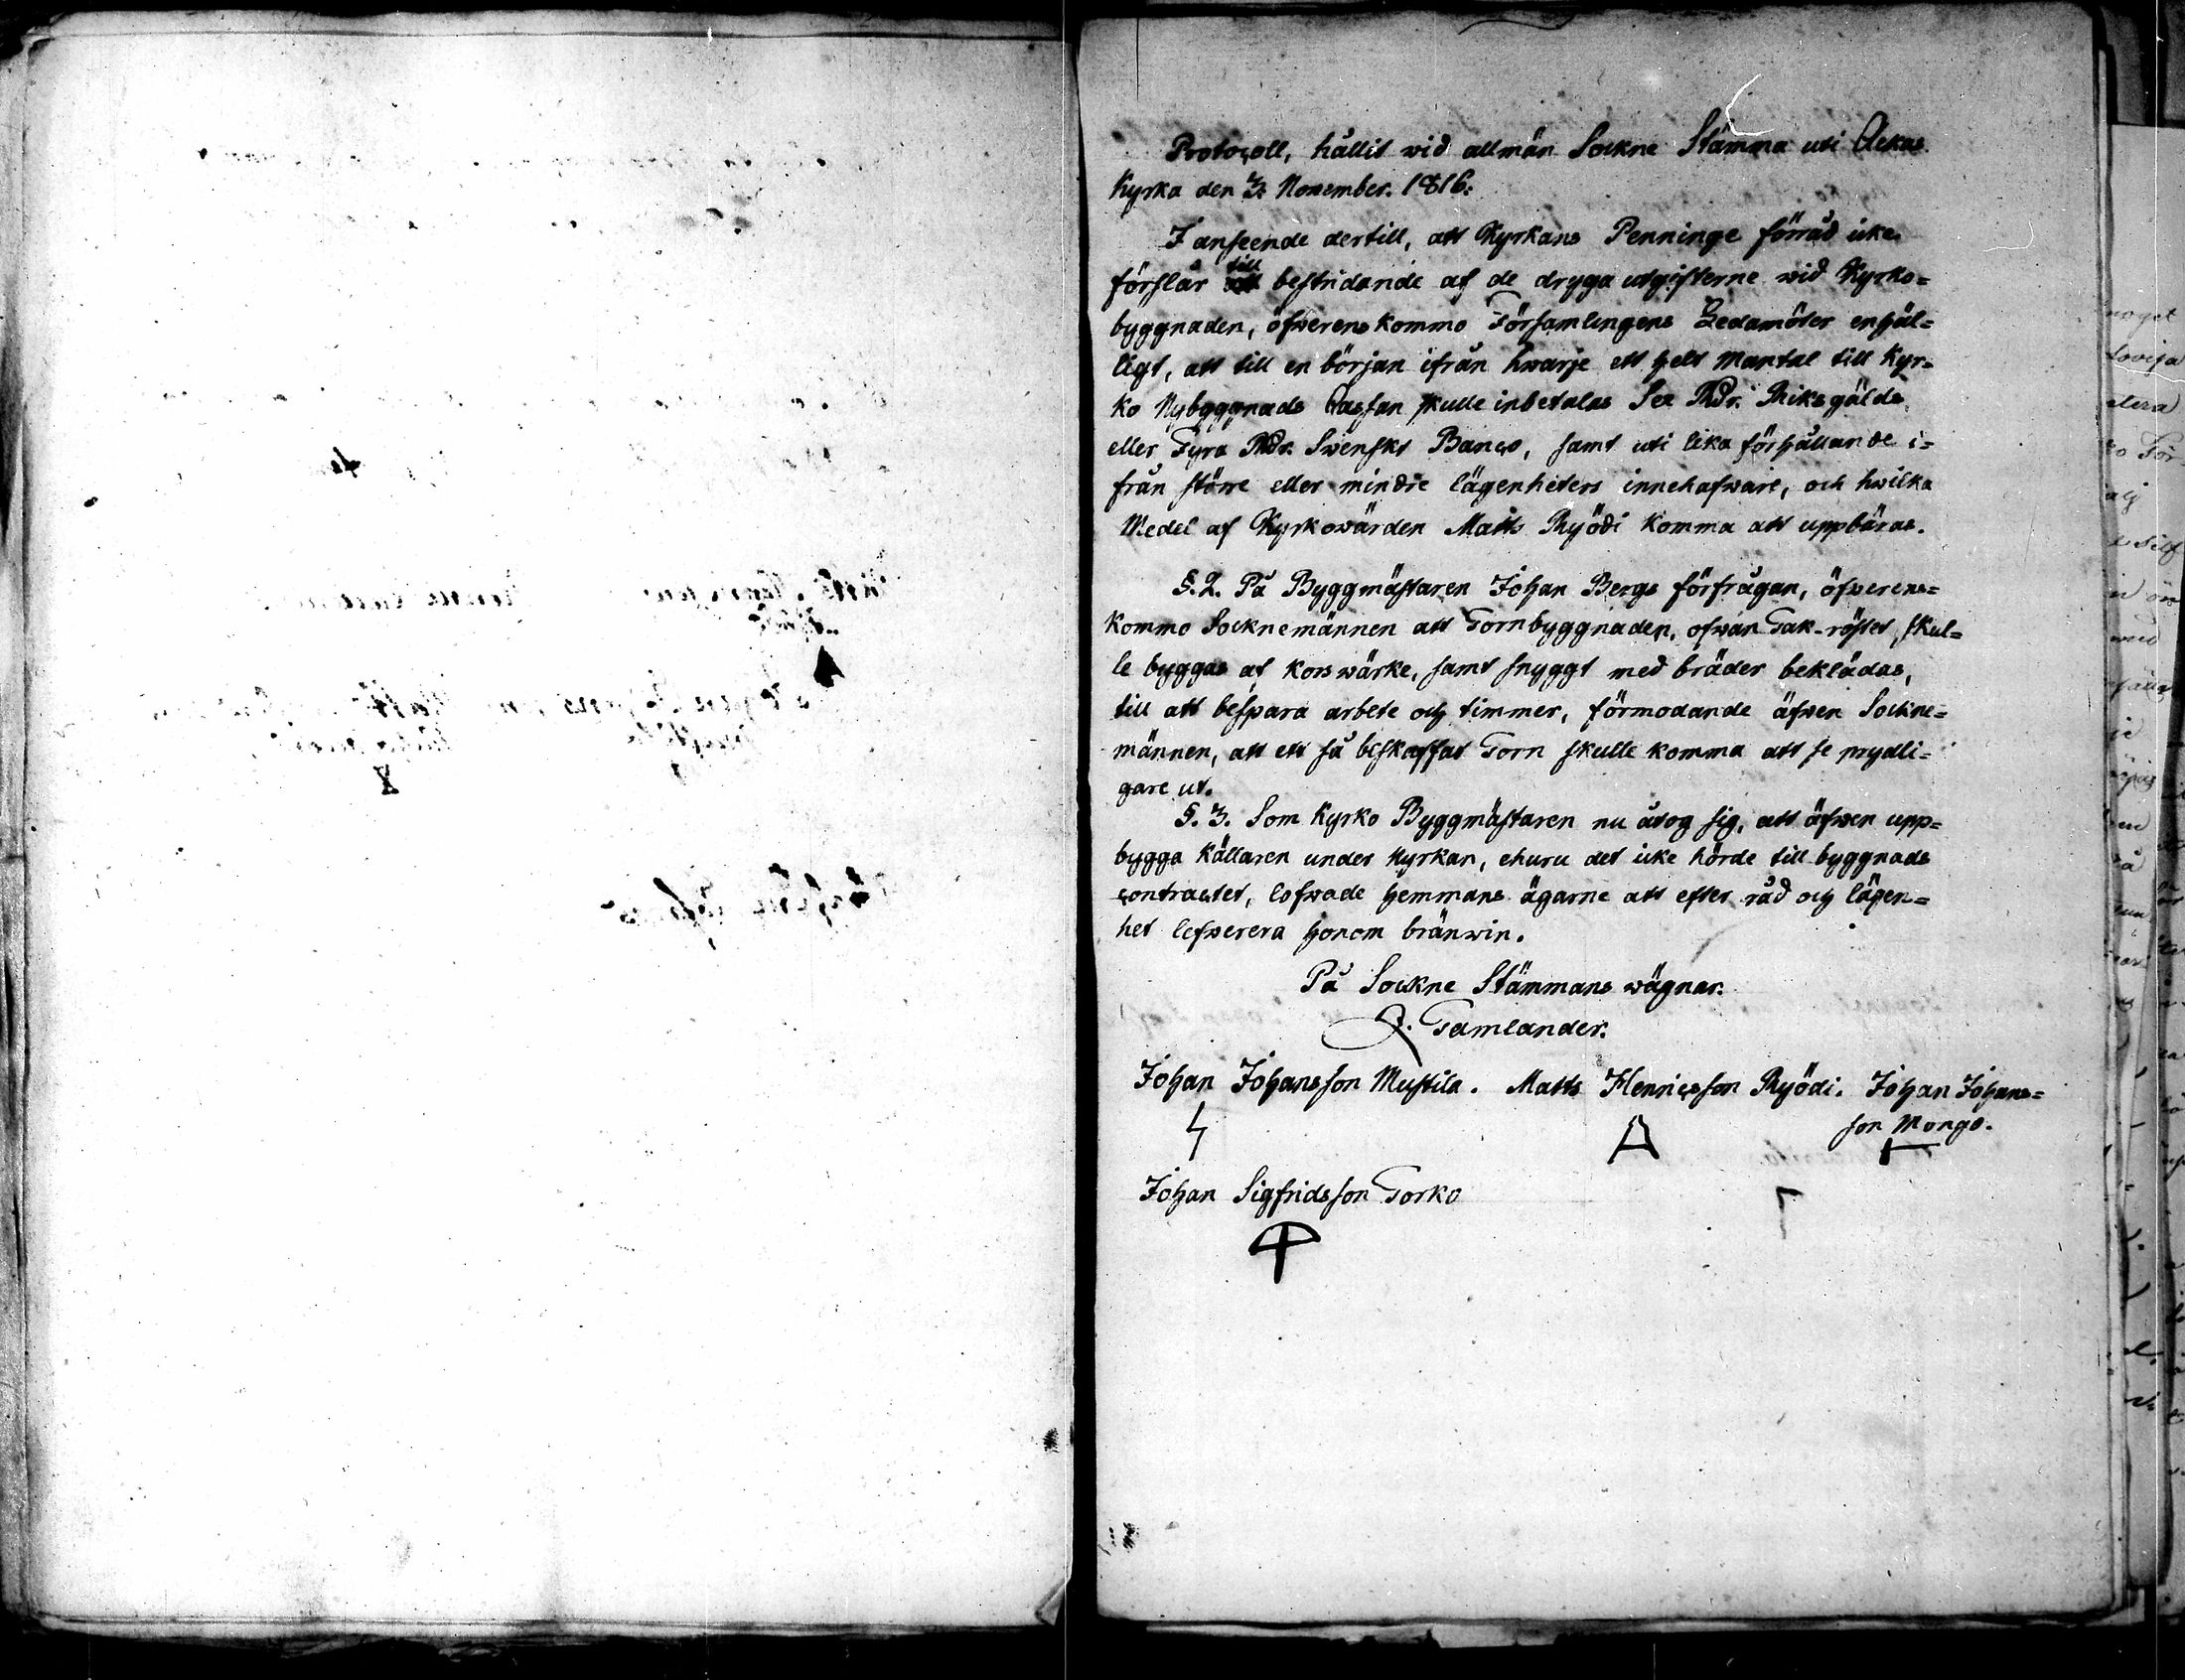 Protocoll, hållit wid allmän Sockne Stämma uti Ackas
Kyrka den 3. November. 1816.
I anseende dertill, att Kyrkans Penninge förråd icke
förslår till bestridande af de dryga utgifterne wid Kyrko=
byggnaden, öfwerenskommo Församlingens Ledamöter enhäl=
ligt, att till en början ifrån hwarje ett helt mantal till Kyr=
ko Nybyggnads Cassan skulle inbetalas Sex Rdr. Riksgälds
eller Fyra Rdr. Swenskt Banco, samt uti lika förhållande i=
från större eller mindre lägenheters innehafware, och hwilka
Medel af Kyrkowärden Matts Ryödi komma att uppbäras.
§. 2. På Byggmästaren Johan Bergs förfrågan, öfwerens=
kommo Socknemännen att Tornbyggnaden, ofwan Tak-röstet, skul=
le byggas af korswärke, samt snyggt med bräder beklädas,
till att bespara arbete och timmer, förmodande äfwen Sockne=
männen, att ett så beskaffat Torn skulle komma att se prydli=
gare ut.
§. 3. Som Kyrko Byggmästaren nu åtog sig, att äfwen upp=
bygga källaren under Kyrkan, ehuru det icke hörde till byggnads
contractet, lofwade hemmans ägarne att efter råd och lägen=
het lefwerera honom bränwin.
På Sockne Stämmans wägnar.
Tamlander.
Johan Johansson Mustila. Matts Henricsson Ryödi. Johan Johans=
son Mongo.
Johan Sigfridsson Torko